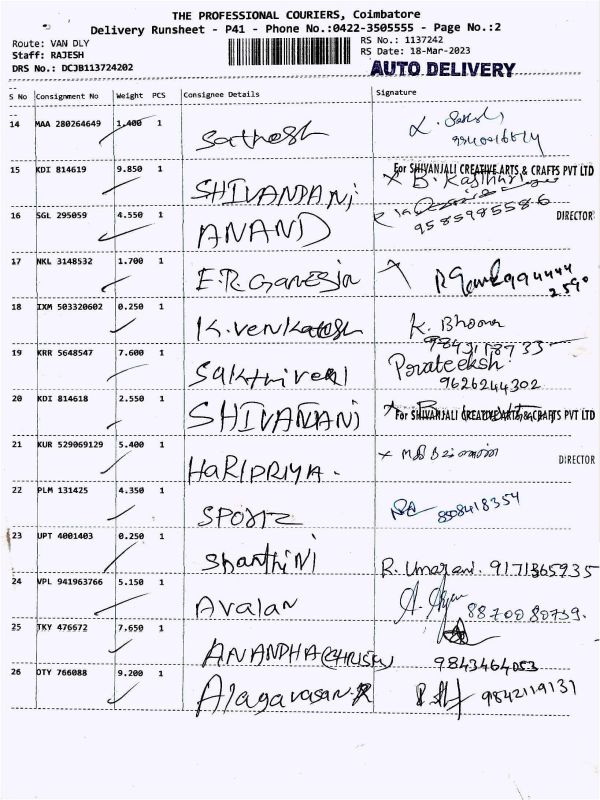 THE PROFESSIONAL COURIERS, Coimbatore
Delivery Runsheet - P41 - Phone No.:0422-3505555 - Page No.:2
Route: VAN DLY
Staff: RAJESH
DRS No.: DCJB113724202
RS No.: 1137242
RS Date: 18-Mar-2023
AUTO DELIVERY
S No Consignment No Weight PCS Consignee Details Signature
14 MAA 280264649 1.400 1 Sathesh
15 KDI 814619 9.850 1 SHIVANDANi For SHIVANJALI CREATIVE ARTS & CRAFTS PVT LTD
16 SGL 295059 4.550 1 ANAND 9585985586 DIRECTOR
17 NKL 3148532 1.700 1 E.R Ganesja
18 IXM 503320602 0.250 1 K.venkatesh K. Bhoova
19 KRR 5648547 7.600 1 Sakthivel Prateeksh
9626244302
20 KDI 814618 2.550 1 For SHIVANJALI CREATIVE ARTS & CRAFTS PVT LTD
21 KUR 529069129 5.400 1 HARIPRIYA. DIRECTOR
22 PLM 131425 4.350 1 8508418354
23 UPT 4001403 0.250 1 Shanthini R. Umarani. 9171365935
24 VPL 941963766 5.150 1 Avalan 8870080739.
25 TKY 476672 7.650 1 ANANDHA 9843464053
26 OTY 766088 9.200 1 Alagavasan.R 9842119131